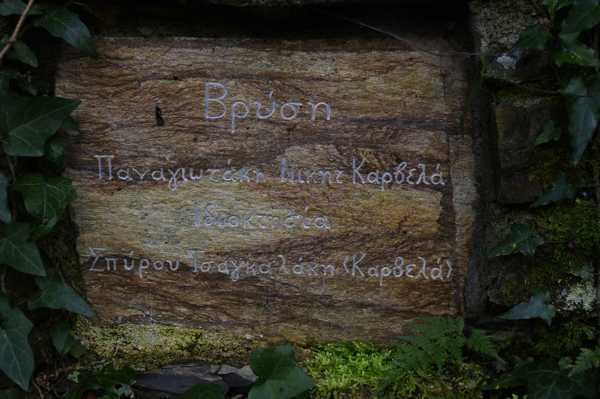 Βρύση
Παναγιωτάκη Νικητ Καρβελά
Ιδιοκτησία
Σπύρου Τσαγκαλάκη (Καρβελά)